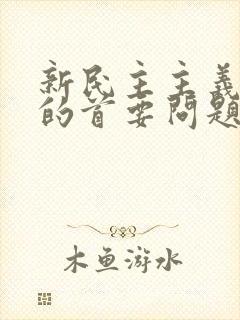 新民主主义
的首要问题
木鱼游水